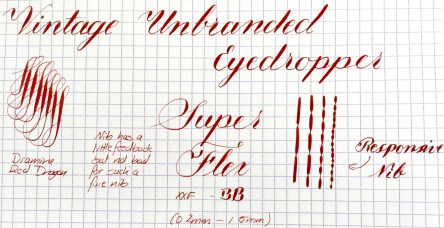 Vintage Unbranded
Eyedropper
Super
Flex
XXF - BB
(0.2mm - 1.5mm)
Nib has a
little feedback
but not bad
for such a
fine nib
Diamine
Red Dragon
Responsive
Nib